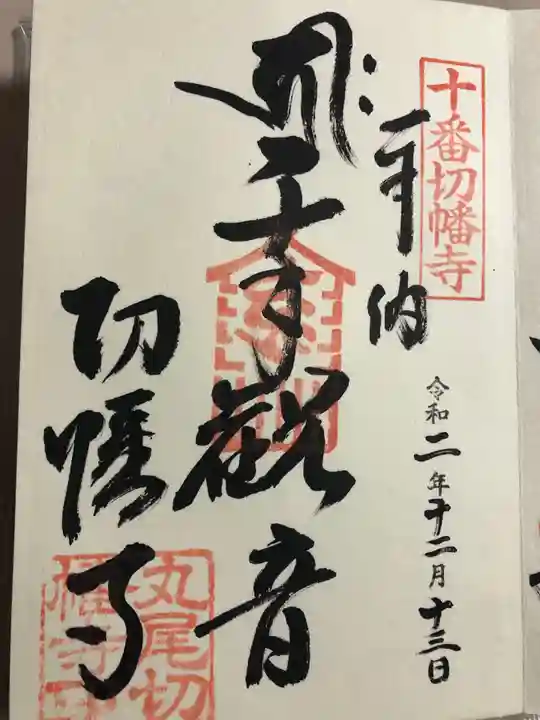 十番切幡寺
奉納
令和二年十二月十三日
千手観音
切幡寺
丸尾切
幡寺